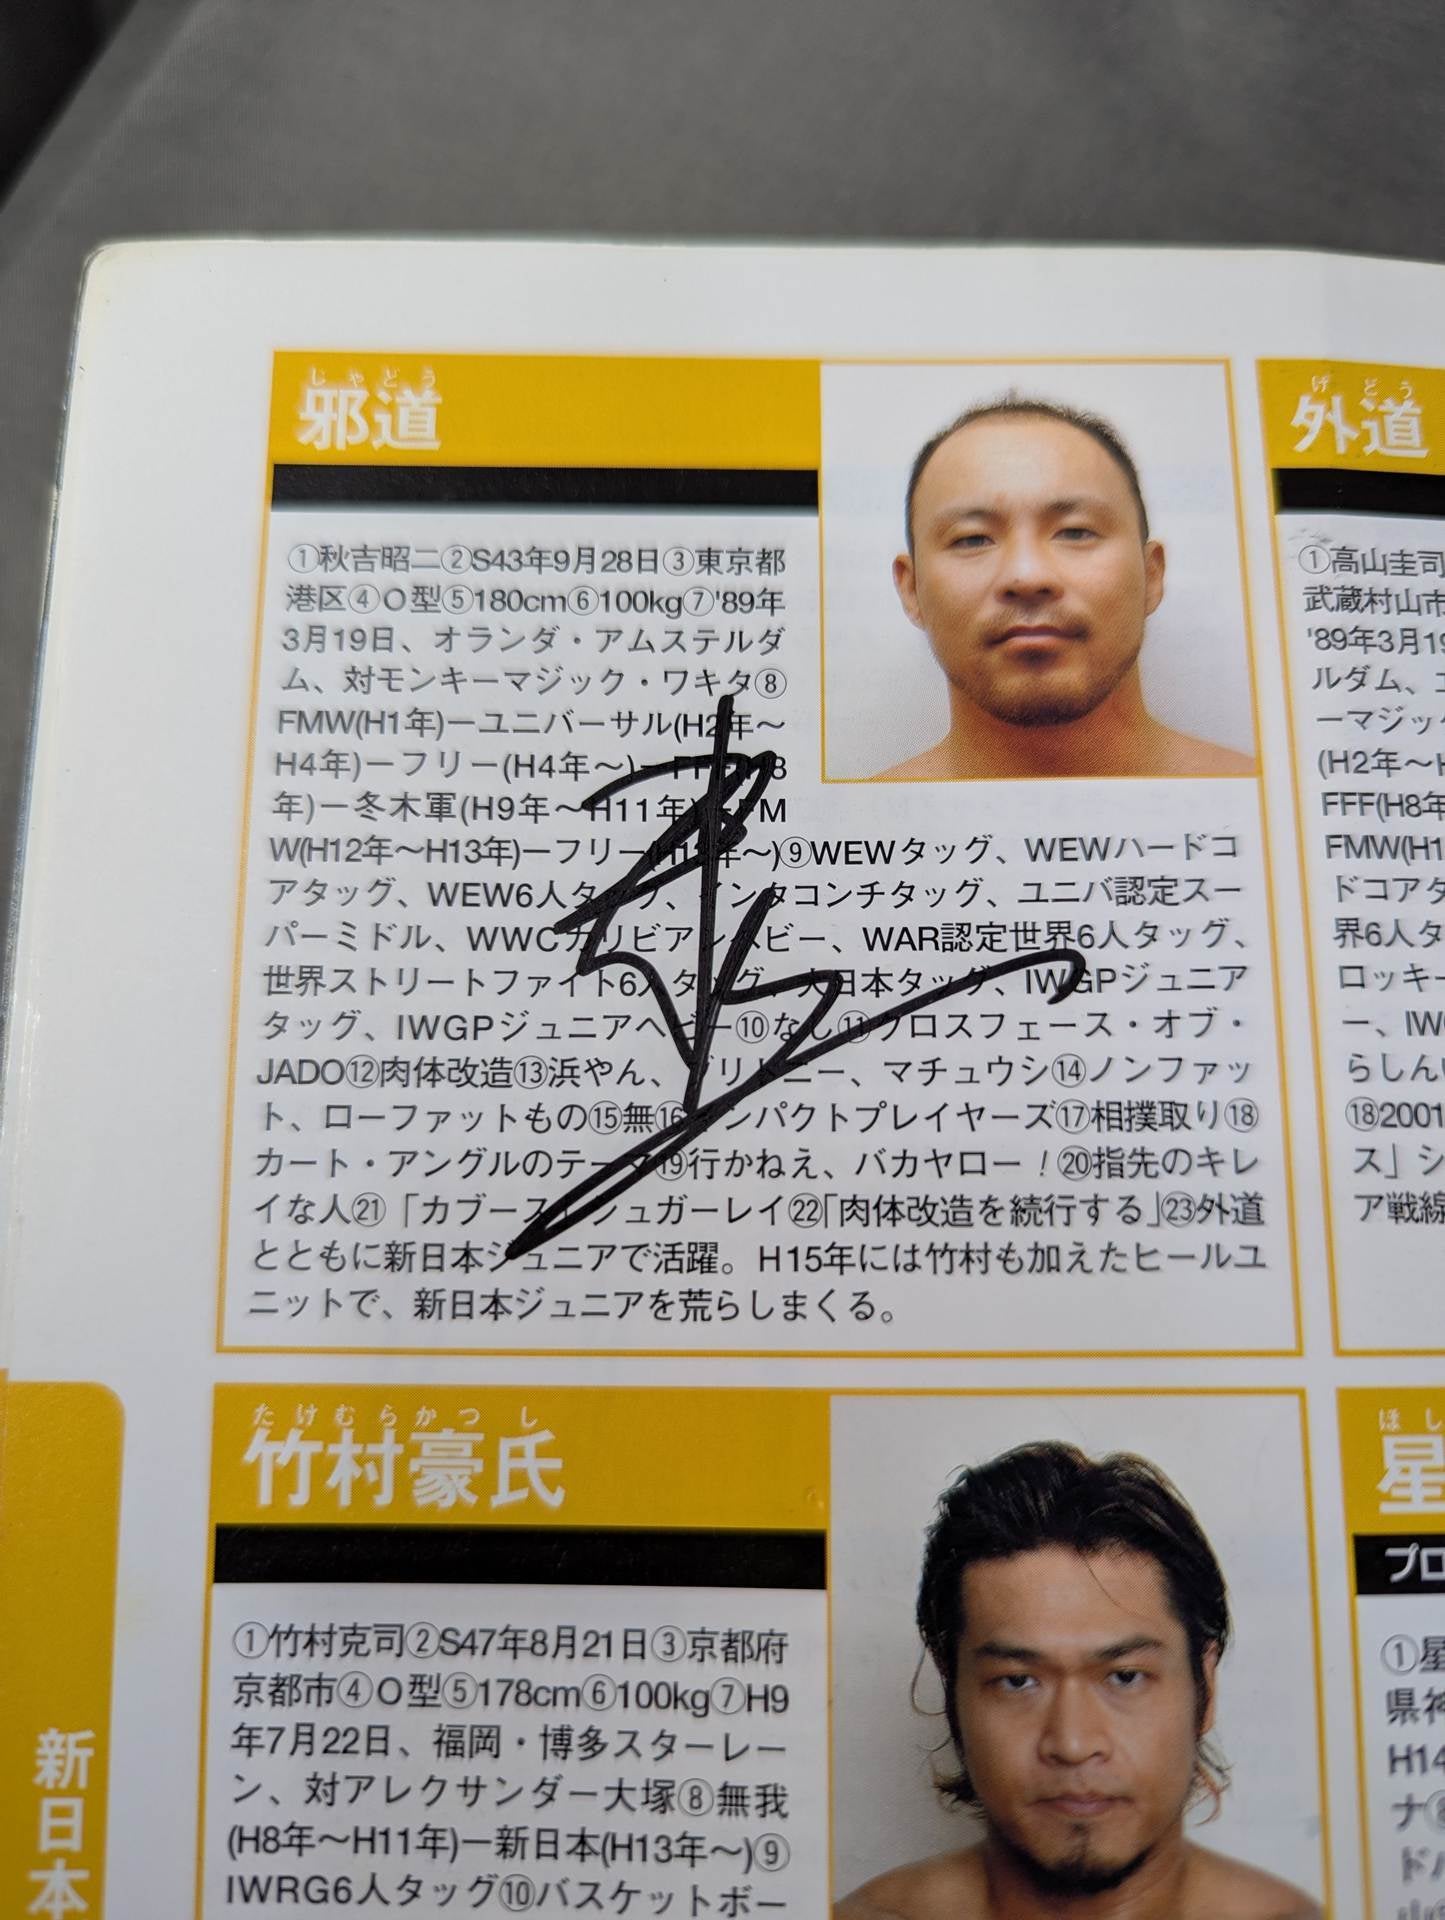 じゃどう
邪道
①秋吉昭二②S43年9月28日③東京都
港区④O型⑤180cm⑥100kg⑦'89年
3月19日、オランダ・アムステルダ
ム、対モンキーマジック・ワキタ⑧
FMW(H1年)ーユニバーサル(H2年〜
H4年)ーフリー(H4年〜)ーFFF(H8
年)ー冬木軍(H9年〜H11年)ーFM
W(H12年〜H13年)ーフリー(H13年〜)⑨WEWタッグ、WEWハードコ
アタッグ、WEW6人タッグ、インタコンチタッグ、ユニバ認定スー
パーミドル、WWCカリビアンヘビー、WAR認定世界6人タッグ、
世界ストリートファイト6人タッグ、大日本タッグ、IWGPジュニア
タッグ、IWGPジュニアヘビー⑩なし⑪クロスフェース・オブ・
JADO⑫肉体改造⑬浜やん、ブリトニー、マチュウシ⑭ノンファッ
ト、ローファットもの⑮無⑯インパクトプレイヤーズ⑰相撲取り⑱
カート・アングルのテーマ⑲行かねえ、バカヤロー！⑳指先のキレ
イな人㉑「カブース」シュガーレイ㉒「肉体改造を続行する」㉓外道
とともに新日本ジュニアで活躍。H15年には竹村も加えたヒールユ
ニットで、新日本ジュニアを荒らしまくる。
げどう
外道
①高山圭司
武蔵村山市
'89年3月19
ルダム、
ーマジック
(H2年〜H
FFF(H8年
FMW(H1
ドコアタ
界6人タ
ロッキー
ー、IW
らしん
⑱2001
ス」シ
ア戦線
たけむらかつし
竹村豪氏
①竹村克司②S47年8月21日③京都府
京都市④O型⑤178cm⑥100kg⑦H9
年7月22日、福岡・博多スターレー
ン、対アレクサンダー大塚⑧無我
(H8年〜H11年)ー新日本(H13年〜)⑨
IWRG6人タッグ⑩バスケットボー
ほし
星
プロ
①星
県神
H14
ナ⑧
ドバ
新日本